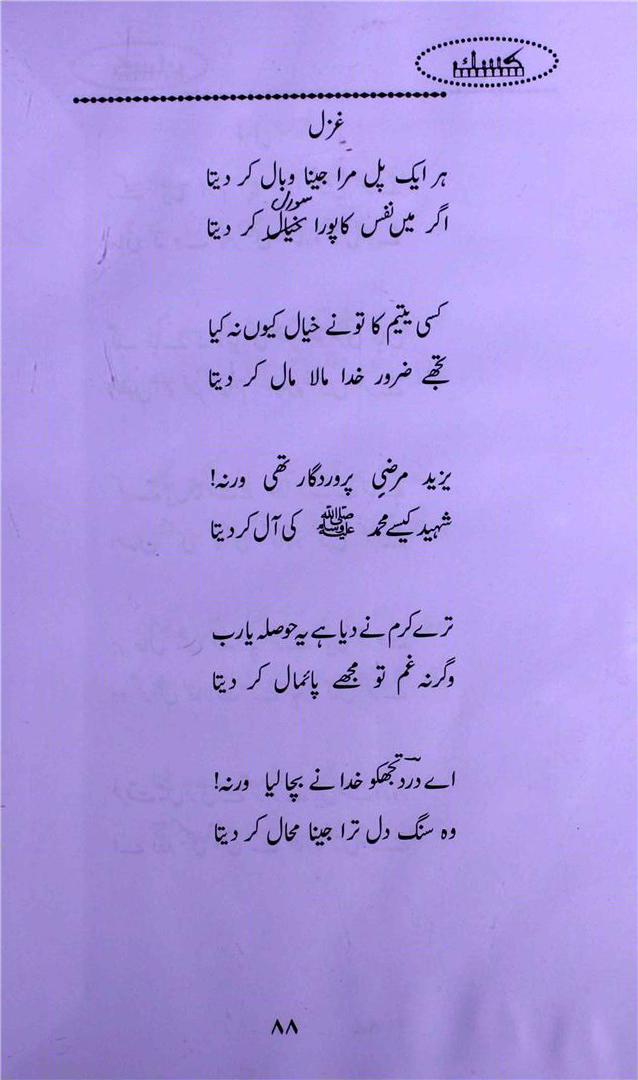 کسک
غزل
ہر ایک پل مرا جینا وبال کر دیتا
سوال
اگر میں نفس کا پورا خیال کر دیتا
کسی یتیم کا تو نے خیال کیوں نہ کیا
تجھے ضرور خدا مالا مال کر دیتا
یزید مرضیِ پروردگار تھی ورنہ!
شہید کیسے محمد ﷺ کی آل کر دیتا
ترے کرم نے دیا ہے یہ حوصلہ یارب
وگرنہ غم تو مجھے پائمال کر دیتا
اے دردؔ تجھکو خدا نے بچا لیا ورنہ!
وہ سنگ دل ترا جینا محال کر دیتا
۸۸